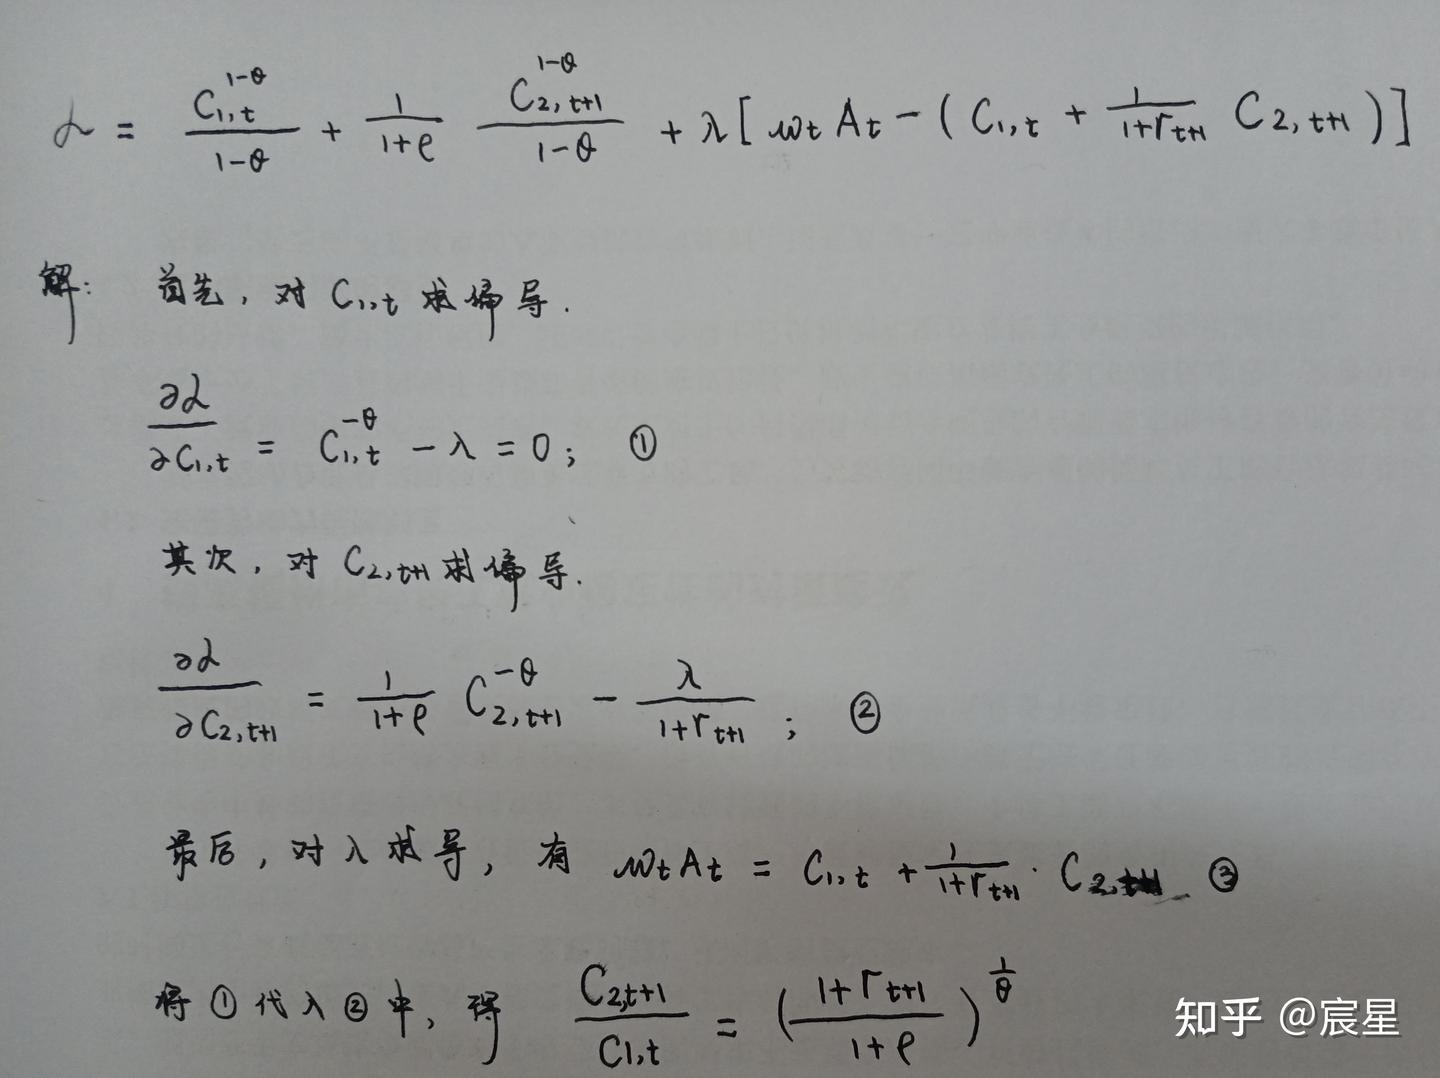 ℒ = C₁,ₜ^(1-θ)/(1-θ) + 1/(1+ρ) C₂,ₜ₊₁^(1-θ)/(1-θ) + λ[wₜAₜ - (C₁,ₜ + 1/(1+rₜ₊₁) C₂,ₜ₊₁)]
解: 首先, 对 C₁,ₜ 求偏导.
∂ℒ/∂C₁,ₜ = C₁,ₜ^(-θ) - λ = 0; ①
其次, 对 C₂,ₜ₊₁ 求偏导.
∂ℒ/∂C₂,ₜ₊₁ = 1/(1+ρ) C₂,ₜ₊₁^(-θ) - λ/(1+rₜ₊₁); ②
最后, 对 λ 求导, 有 wₜAₜ = C₁,ₜ + 1/(1+rₜ₊₁) · C₂,ₜ₊₁ ③
将 ① 代入 ② 中, 得 C₂,ₜ₊₁/C₁,ₜ = ((1+rₜ₊₁)/(1+ρ))^(1/θ)
知乎 @宸星